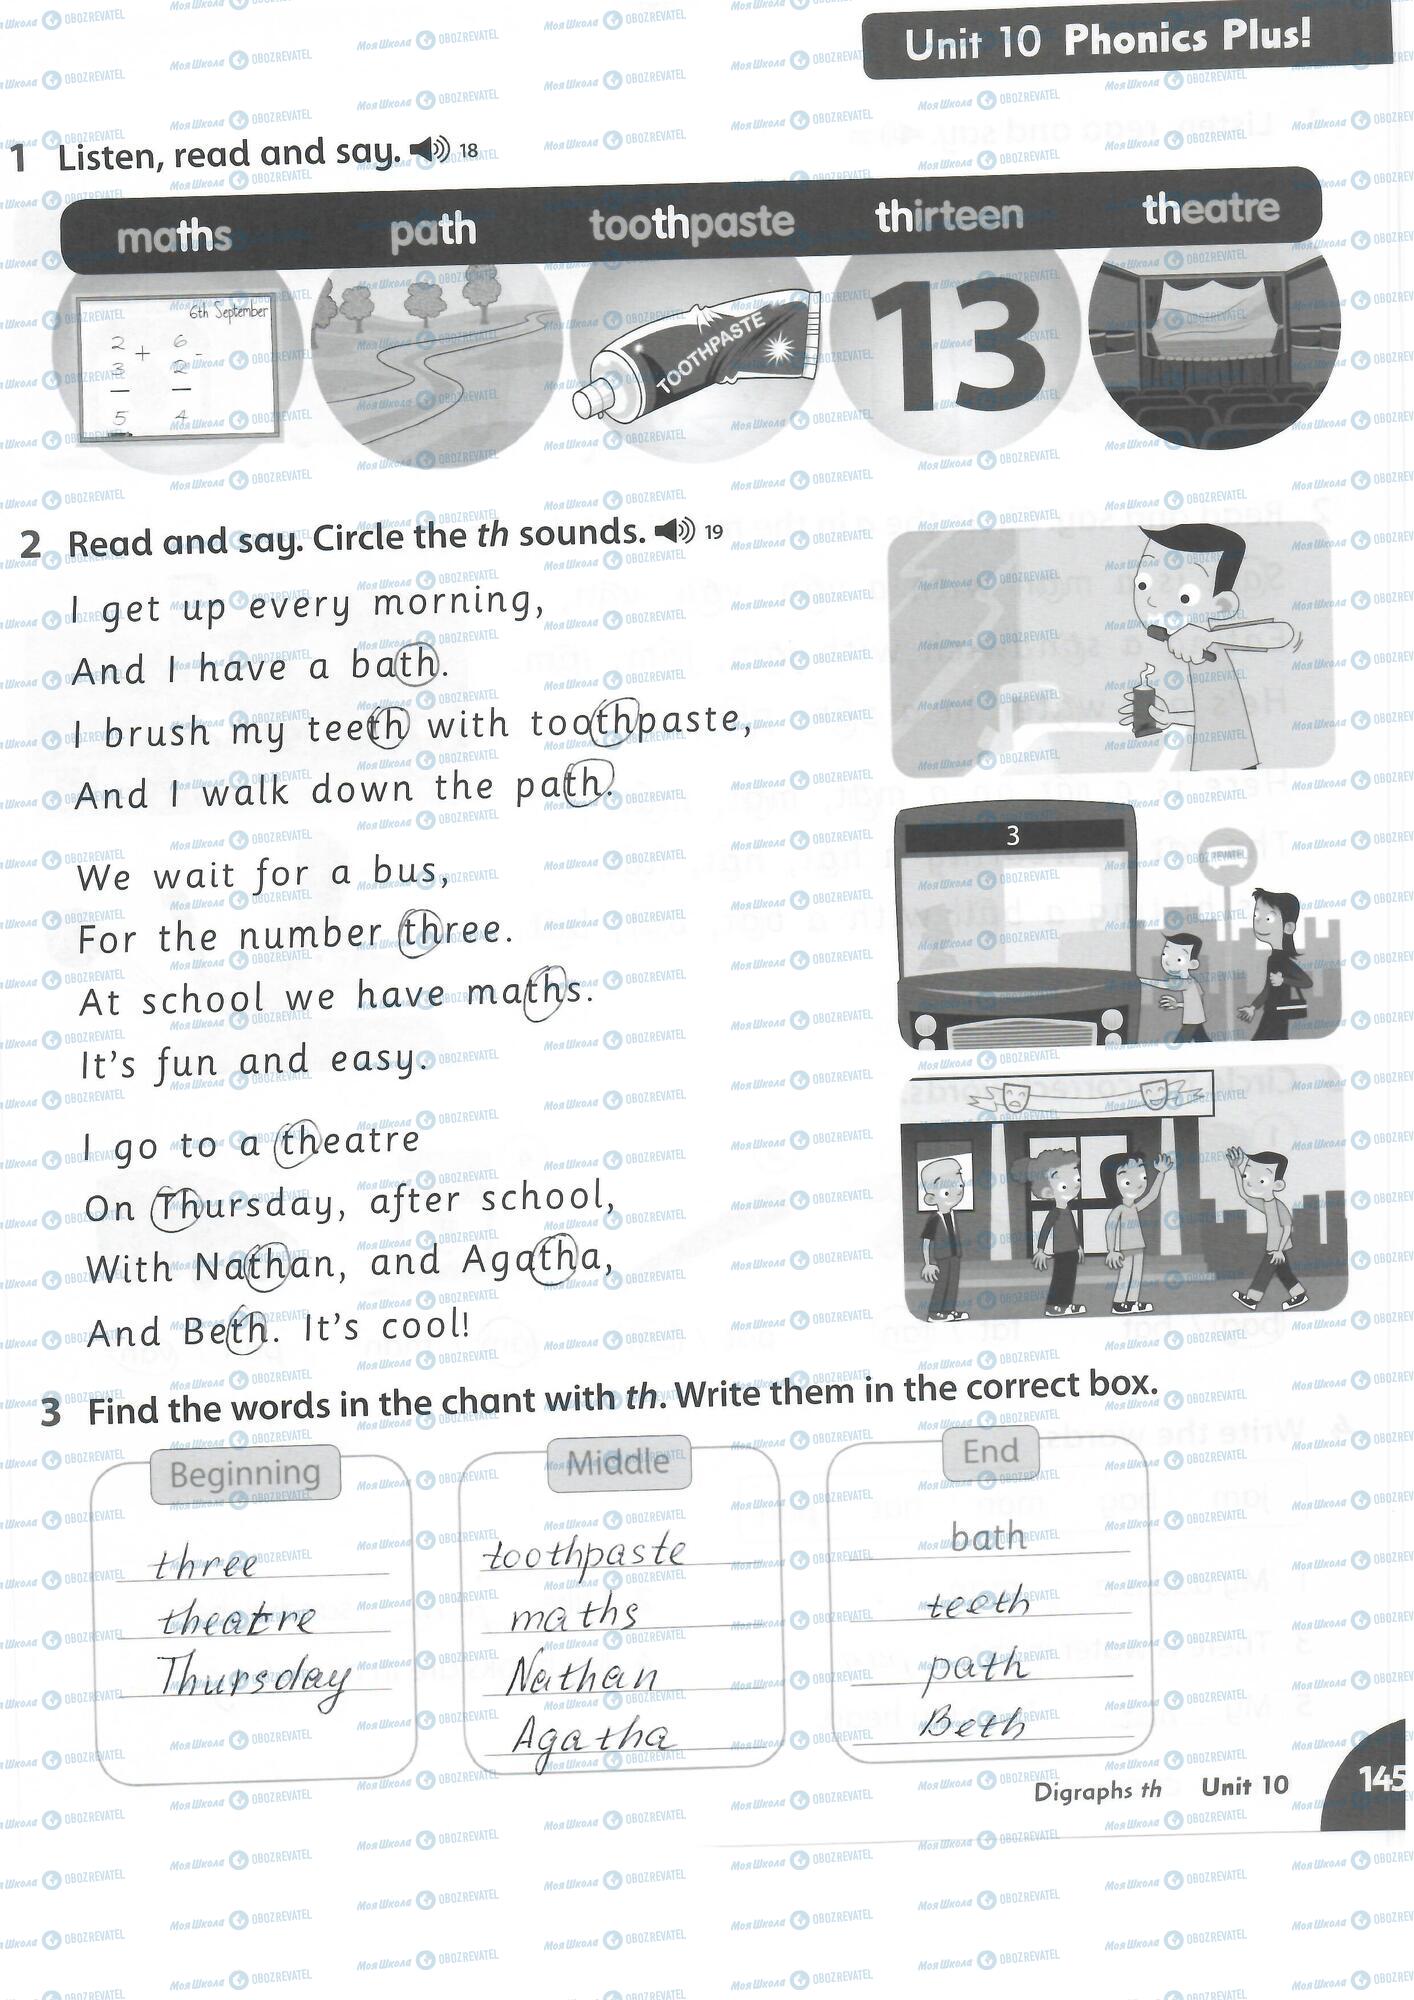 Unit 10 Phonics Plus!
1 Listen, read and say. 18
maths path toothpaste thirteen theatre
6th September
2 + 6 -
3 2
5 4
TOOTHPASTE
13
2 Read and say. Circle the th sounds. 19
I get up every morning,
And I have a bath.
I brush my teeth with toothpaste,
And I walk down the path.
We wait for a bus,
For the number three.
At school we have maths.
It's fun and easy.
3
I go to a theatre
On Thursday, after school,
With Nathan, and Agatha,
And Beth. It's cool!
3 Find the words in the chant with th. Write them in the correct box.
Beginning
three
theatre
Thursday
Middle
toothpaste
maths
Nathan
Agatha
End
bath
teeth
path
Beth
Digraphs th Unit 10 145
МояШкола OBOZREVATEL